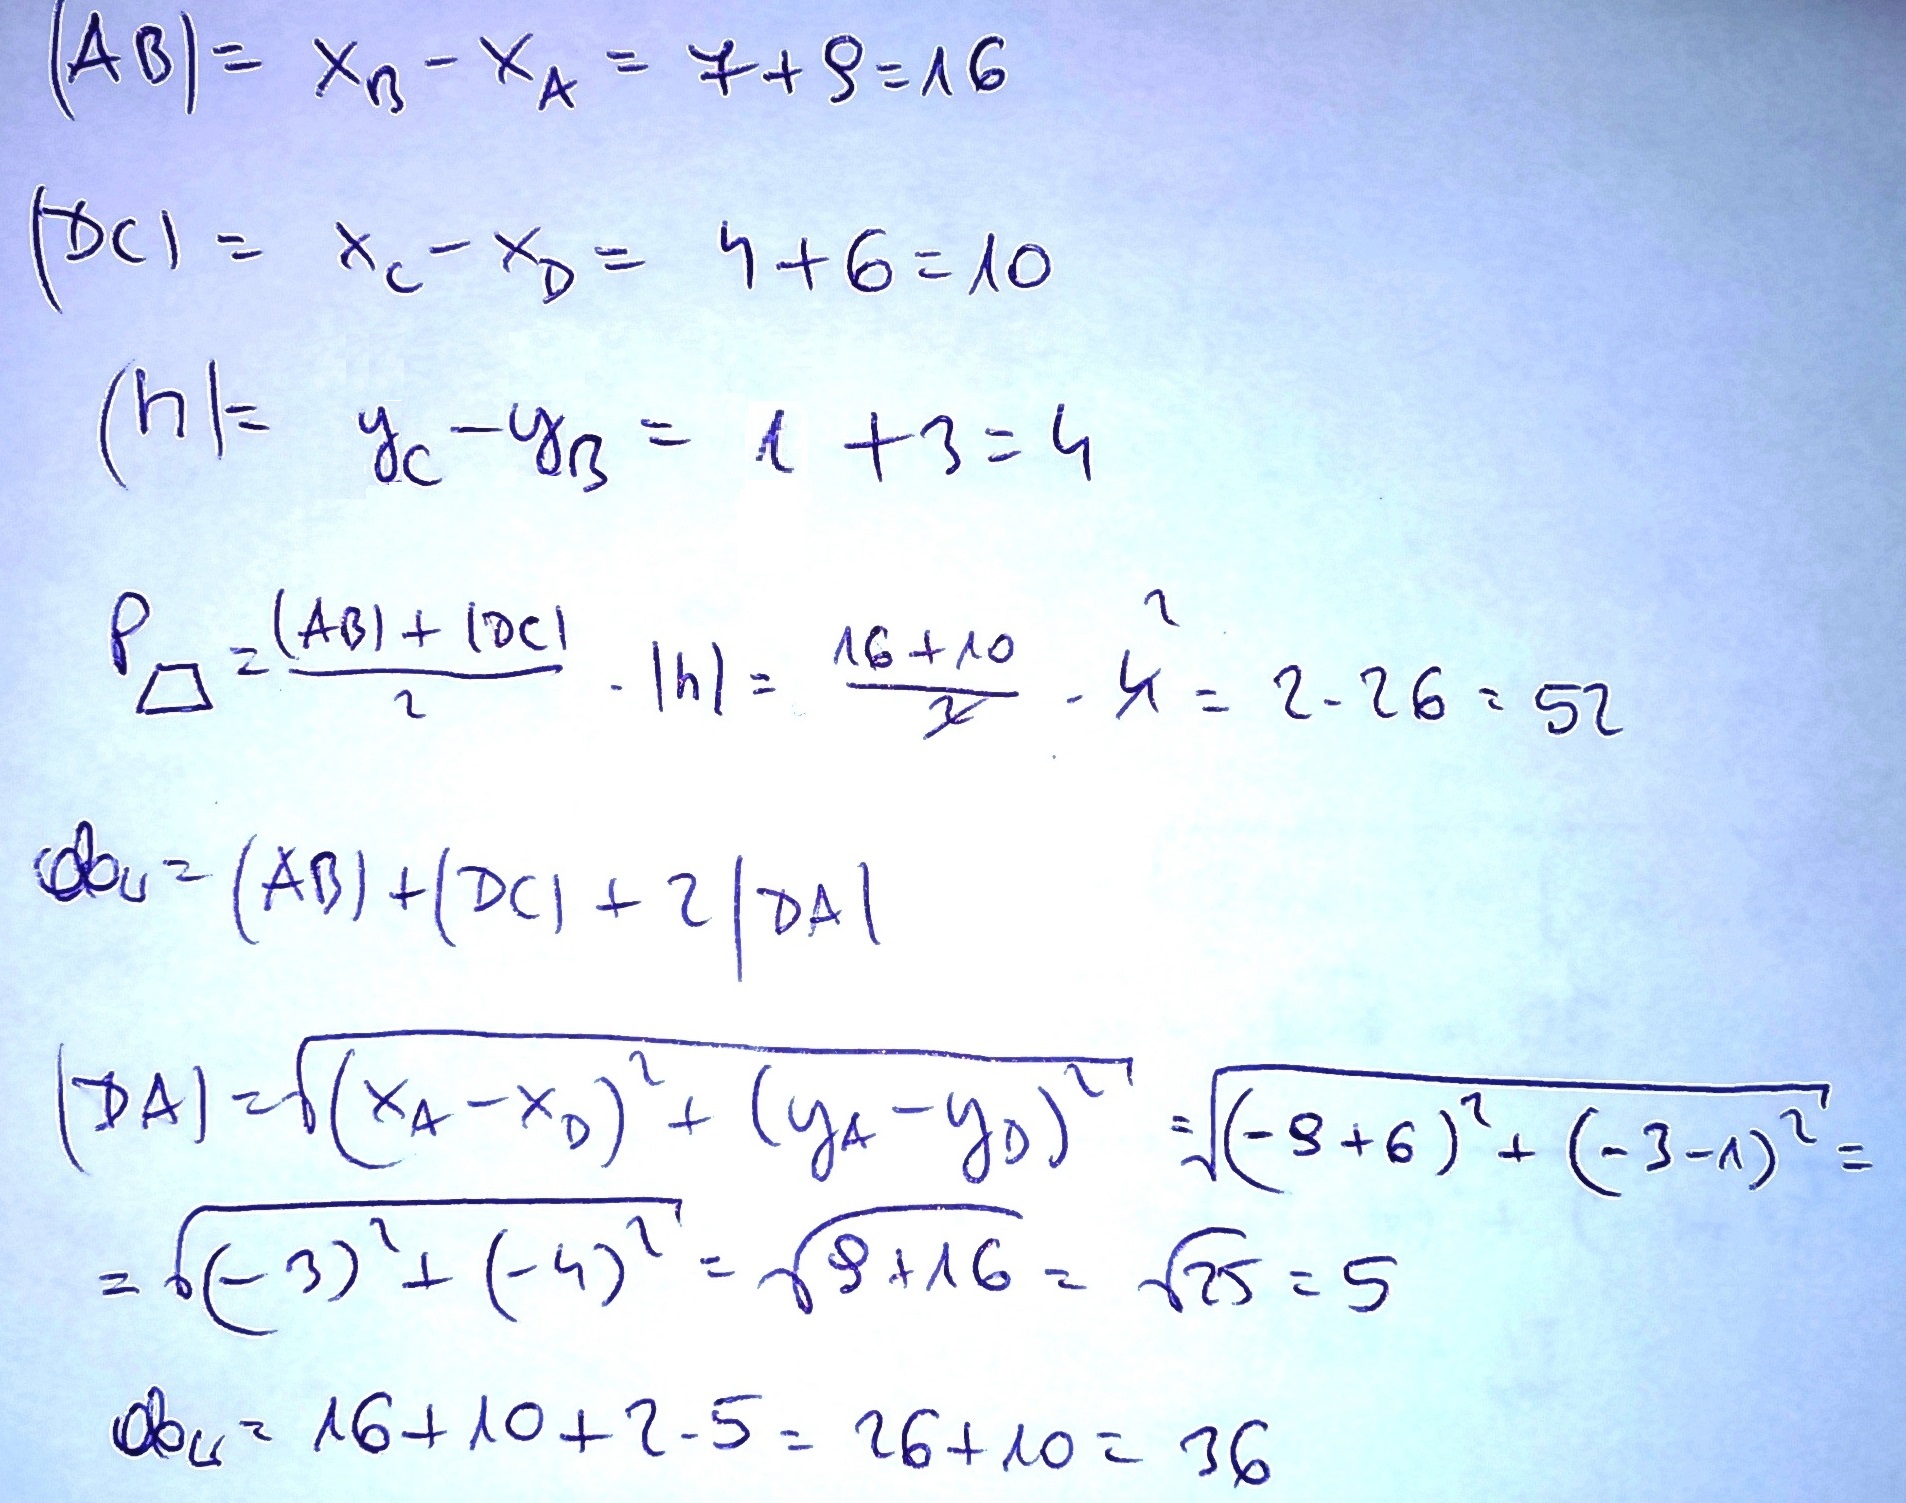 |AB| = x_B - x_A = 7+9=16
|DC| = x_C - x_D = 4+6=10
|h| = y_C - y_B = 1+3=4
P▱ = (|AB| + |DC|)/2 · |h| = (16+10)/2 · 4 2 = 2·26 = 52
obw = |AB| + |DC| + 2|DA|
|DA| = √((x_A - x_D)² + (y_A - y_D)²) = √((-9+6)² + (-3-1)²) =
= √((-3)² + (-4)²) = √(9+16) = √25 = 5
obw = 16+10+2·5 = 26+10 = 36